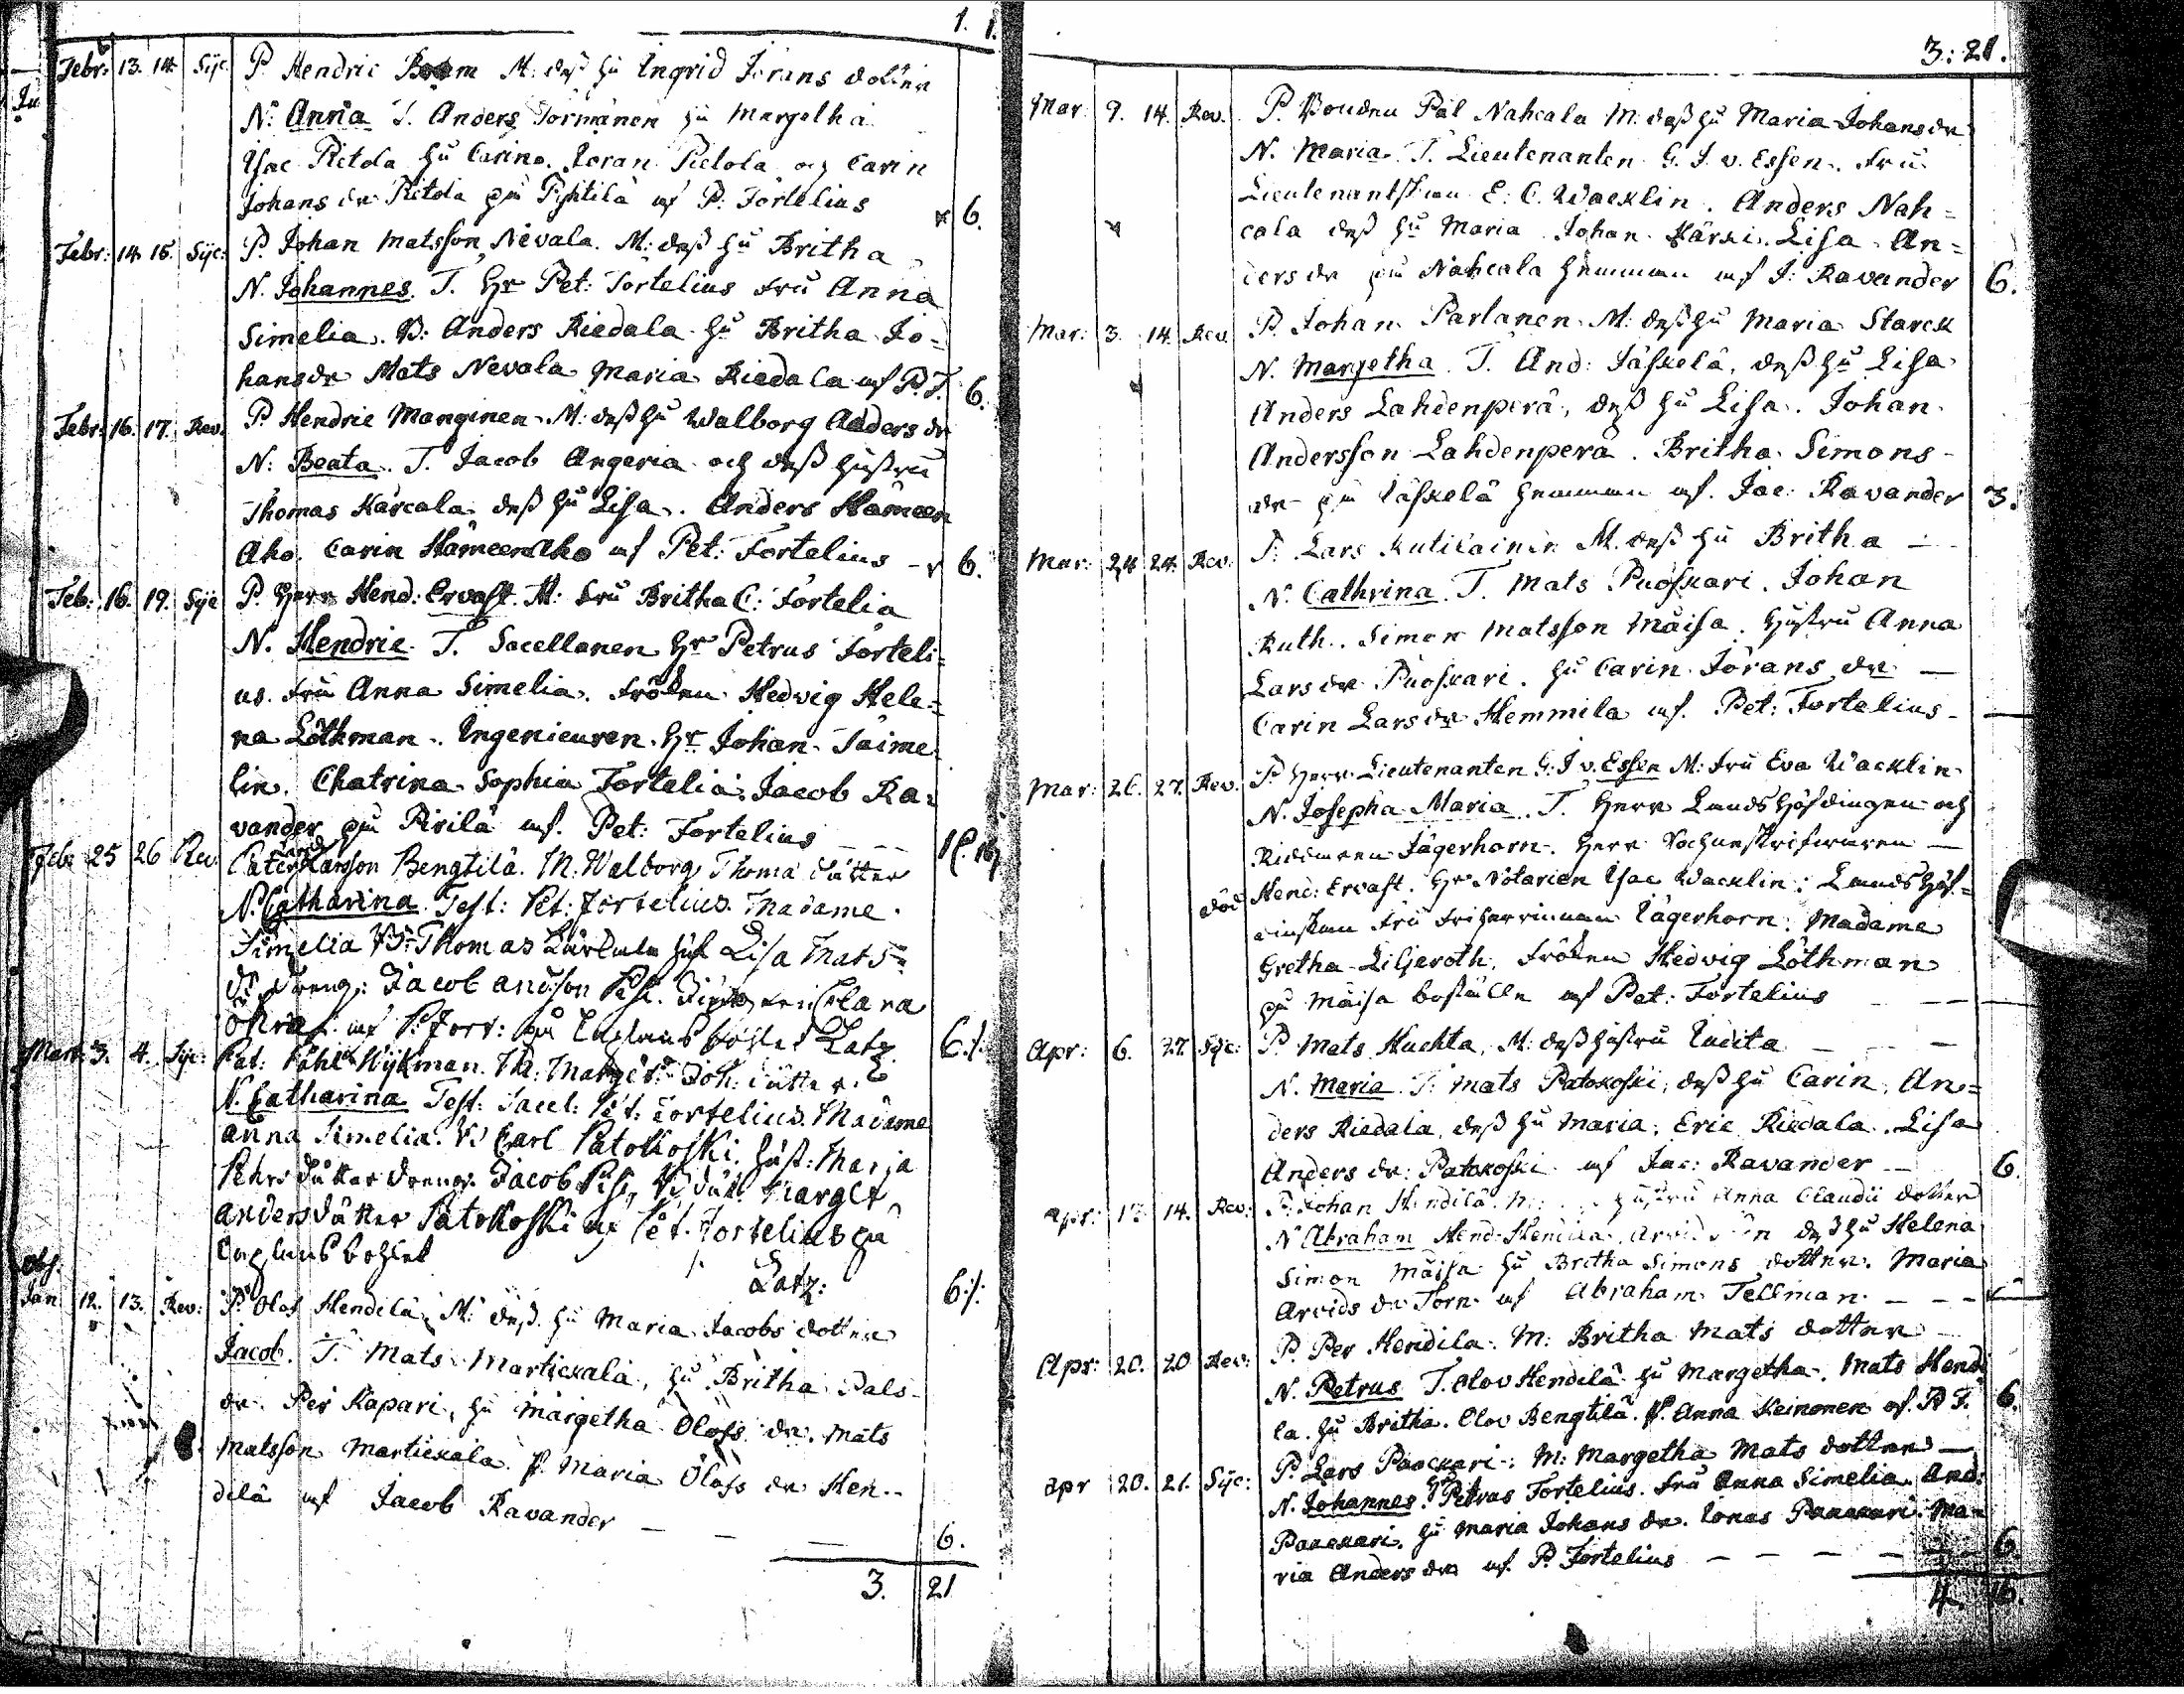 1. 1.
Febr: 13. 14. Sije. P. Hendric Boem M: deß hu Ingrid Jörans dotter
N: Anna T. Anders Törmänen hu Margetha
Isac Pietola hu Carina. Joran Pietola och Carin
Johans dr Pietola på Pyhtilä af P: Fortelius 6.
Febr: 14. 15. Sije: P. Johan Matsson Nevala. M: deß hu Britha
N. Johannes. T. Hr Pet: Fortelius fru Anna
Simelia. B: Anders Riedala hu Britha Jo=
hans dr Mats Nevala Maria Riedala af P. F. 6.
Febr: 16. 17. Rev. P. Hendric Manginen. M: deß hu Walborg Anders dr
N: Beata. T. Jacob Angeria och deß hustru
Thomas Karcala deß hu Lisa. Anders Hämeen
Aho. Carin Hämeenaho af Pet: Fortelius 6.
Feb: 16. 19. Sije P. Herr Hend: Ervast. M: fru Britha C: Fortelia
N. Hendric. T. Sacellanen Hr Petrus Forteli=
us. fru Anna Simelia. fröken Hedvig Hele=
na Löthman. Ingenieuren Hr Johan Taime
lin. Chatrina Sophia Fortelia: Jacob Ra=
vander på Pirilä af. Pet: Fortelius
Febr 25 26 Rev. Pater Larsson Bengtilä. M. Walborg Thoma dåtter
N. Catharina Test: Pet: Fortelius. Madame
Simelia B: Thomas hust Lisa Mats
dr. dreng: Jacob andsson Clara
af P. Fort: på Caplans bohlet Latz 6:/:
Mart: 3. 4. Sije: Pat: Påhl Wijkman. M: Marget Joh: dåtter
N. Catharina Test: Sacel: Pet: Fortelius. Madame
Anna Simelia. B Carl Patokoski, hust: Marja
Pehrs dåtter dreng: Jacob Marget
anders dåtter Patokoski af Pet. Fortelius på
Caplans bohlet Latz: 6:/:
Jan 12. 13. Rev: P. Olof Hendilä, M: deß hu Maria Jacobs dotter
Jacob. T. Mats Martickala, hu Britha Pals
dr. Per Kapari, hu Margetha Olofs dr. Mats
Matsson Martickala. P. Maria Olofs dr Hen=
dilä af Jacob Ravander 6.
3. 21
3: 21.
Mar: 9. 14. Rev. P. Bonden Pål Nahcala M: deß hu Maria Johans dr
N. Maria. T. Lieutenanten G. J. v. Essen. fru
Lieutenantskan E. C. Wacklin. Anders Nah=
cala deß hu Maria Johan Kärki. Lisa An=
ders dr på Nahcala hemman af J: Ravander 6.
Mar: 3. 14. Rev. P. Johan Parlanen M: deß hu Maria Starck
N. Margetha. T. And: Jäskelä, deß hu Lisa
Anders Lahdenperä, deß hu Lisa. Johan
Andersson Lahdenperä. Britha Simons
dr på Jäskelä hemman af. Jac: Ravander 3.
Mar: 24. 24. Rev. P: Lars Kutikainen M. deß hu Britha
N. Cathrina. T. Mats Puoskari. Johan
Ruth. Simon Matsson Maisa. hustru Anna
Lars dr Puoskari. hu Carin Jörans dr
Carin Lars dr Hemmila af. Pet: Fortelius
Mar: 26. 27. Rev. P Herr Lieutenanten G: J v. Essen M: fru Eva Wacklin
N. Josepha Maria. T. Herr Landshöfdingen och
Riddaren Jägerhorn. Herr Sochneskrifwaren
död Hend: Ervast. Hr Notarien Isac Wacklin: Landshöf=
dinskan fru friherrinnan Jägerhorn: Madame
Gretha Liljeroth, fröken Hedvig Löthman
på Maisa boställe af Pet: Fortelius
Apr: 6. 27. Sije: P. Mats Huchta, M: deß hustru Judita
N. Maria T: Mats Patokoski, deß hu Carin, An=
ders Riedala, deß hu Maria, Eric Riedala. Lisa
Anders dr: Patokoski af Jac: Ravander 6.
Apr: 13. 14. Rev: P. Johan Hendilä. M: hustru Anna Claudii dotter
N Abraham Hend: Hendila, deß hu Helena
Simon Maisa hu Britha Simons dotter. Maria
Arvids dr Torn af Abraham Tellman
Apr: 20. 20 Rev: P. Per Hendila. M: Britha Mats dotter
N. Petrus T. Olov Hendilä hu Margetha. Mats Hendi
la. hu Britha. Olov Bengtilä. P. Anna Keinonen af. P F. 6.
apr 20. 21. Sije: P. Lars Paackari: M: Margetha Mats dotter
N. Johannes. Hr Petrus Fortelius. fru Anna Simelia. And:
Paackari. hu Maria Johans dr. Jonas Paackari. Ma=
ria Anders dr af. P. Fortelius 6.
4. 16.